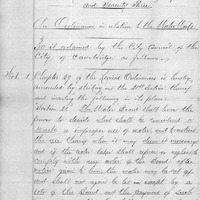 and Seventy three.
An Ordinance in relation to the Water Works.
Be it ordained by the City Council of the
City of Cambridge as follows:
Sect. 1 Chapter 29 of the Revised Ordinances is hereby
amended by striking out the 21st section thereof
and inserting the following in its place.
Section 21. The Water Board shall have the
power to decide what shall be considered
a waste or improper use of water, and to restrict
the use thereof when it may deem it necessary
and if the water taker shall refuse or neglect
comply with any order of the Board, after
notice given to him the water may be cut off
and shall not again be let on except by a
vote of the Board, and the payment of such